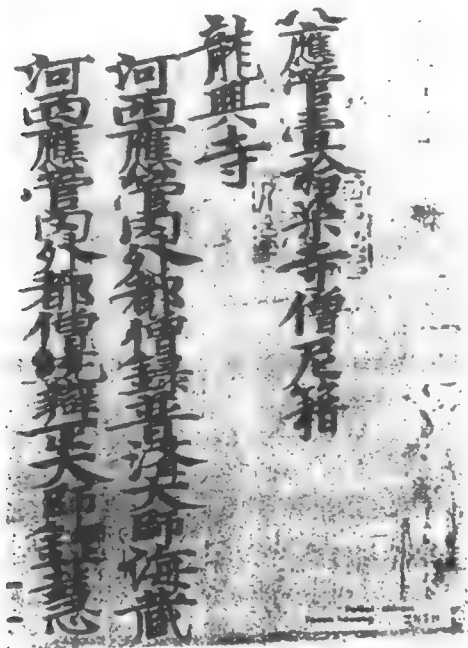 應管壹拾柒寺僧尼籍
龍興寺
河西應管內外都僧錄普濟大師海藏
河西應管內外都僧統辯正大師